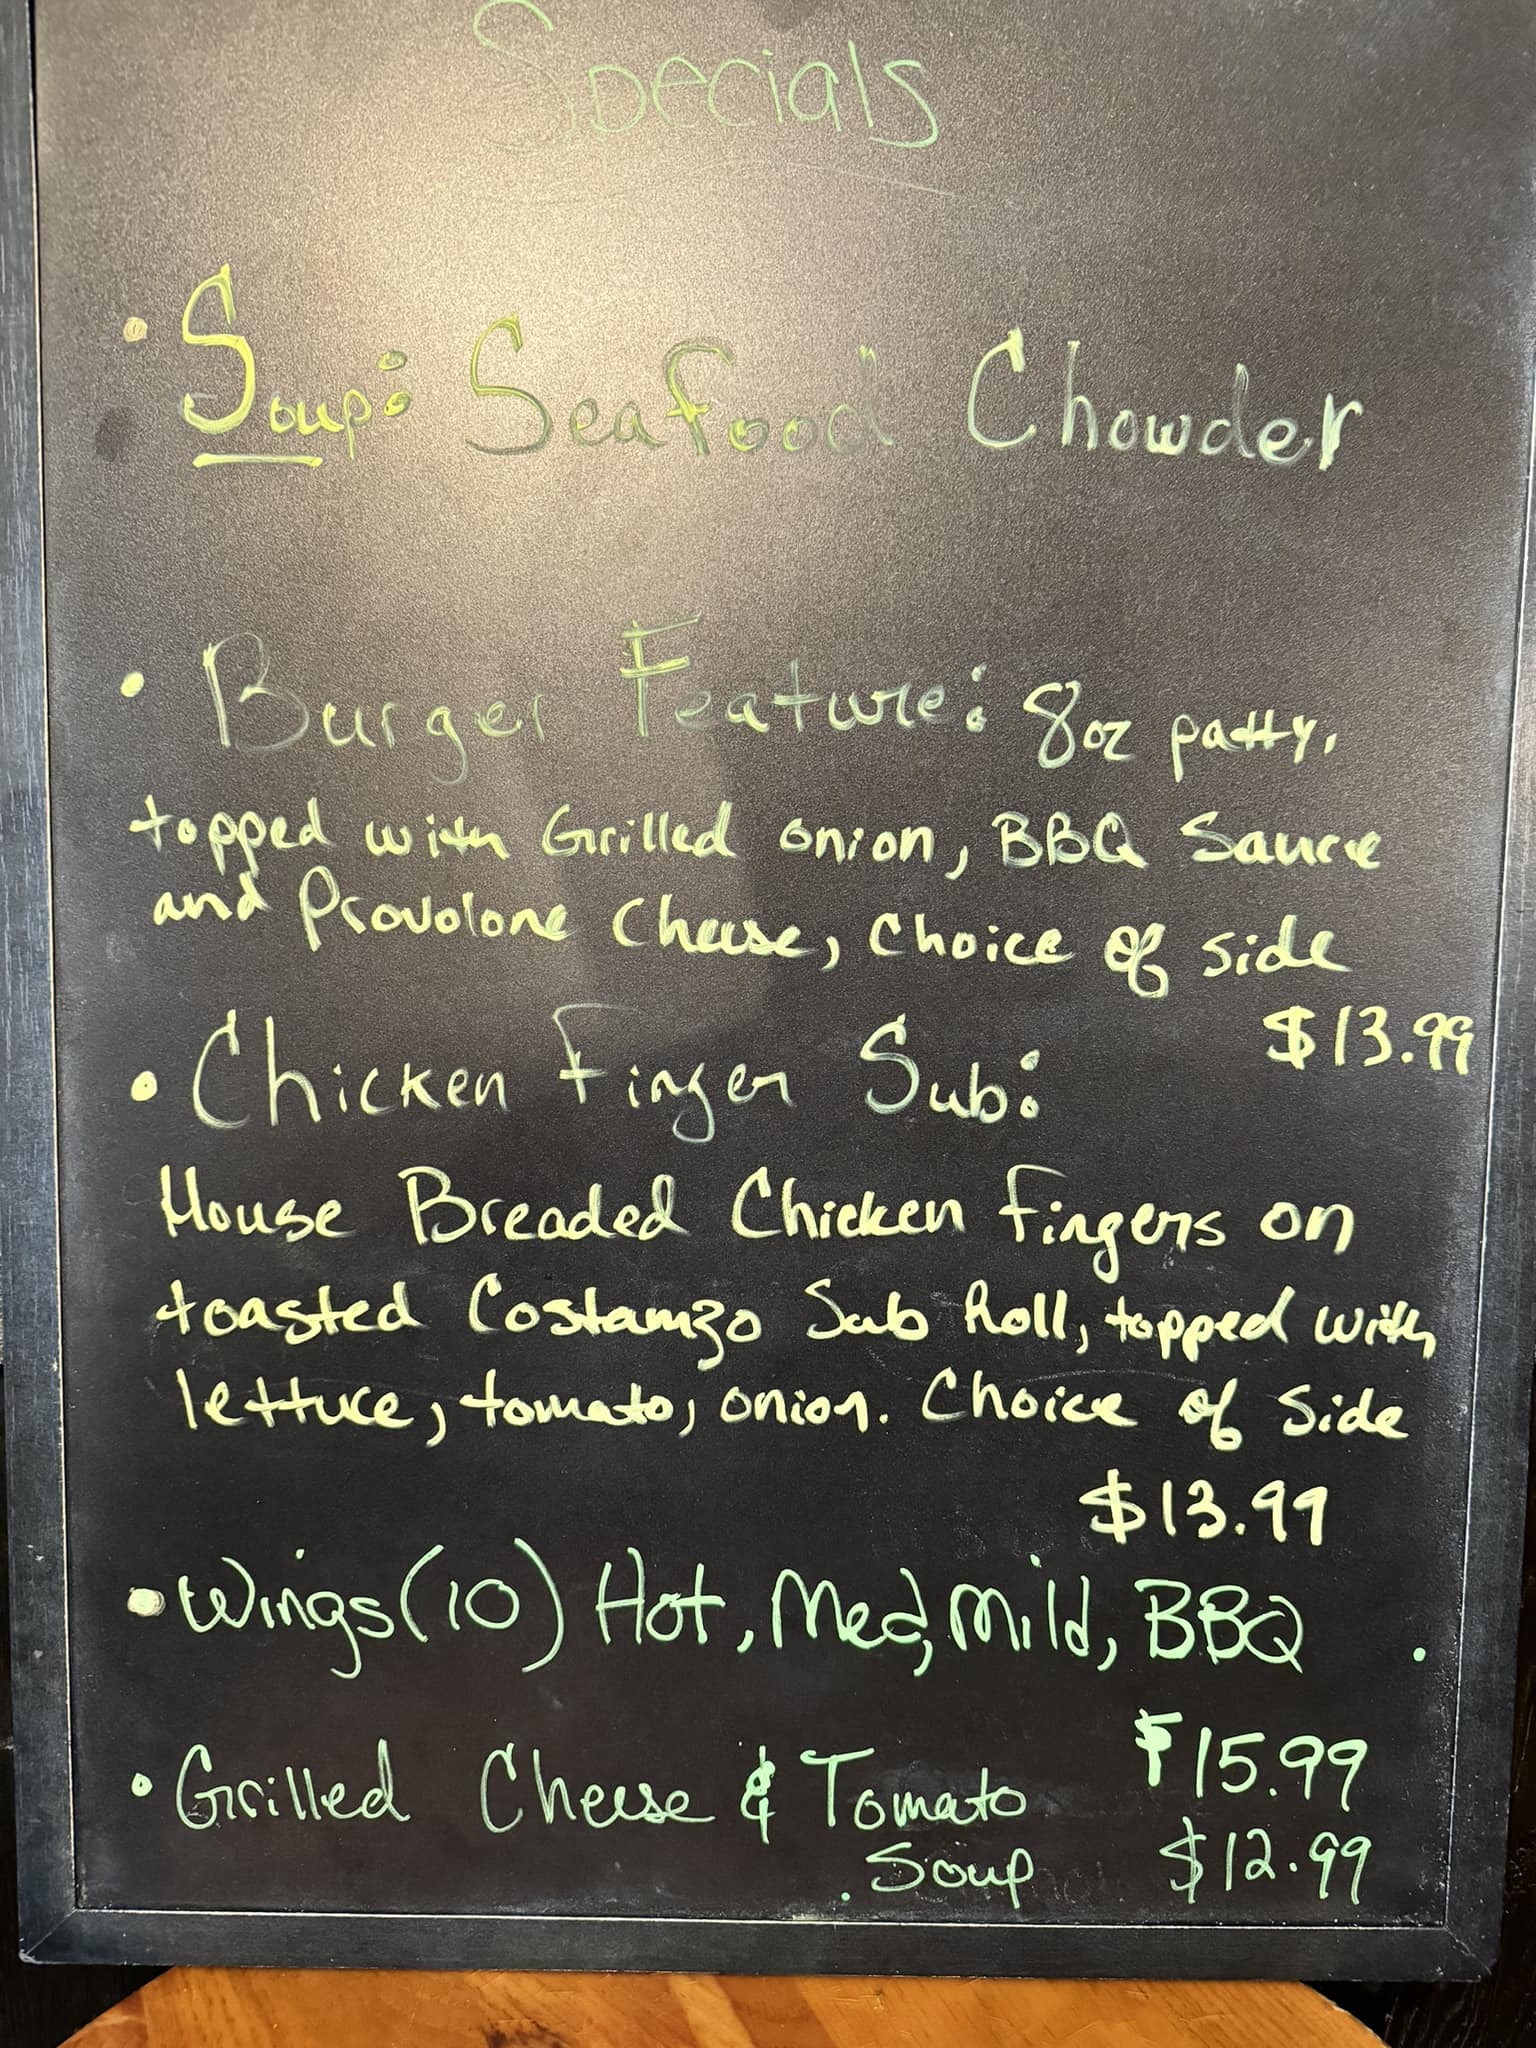 Specials
• Soup: Seafood Chowder
• Burger Feature: 8oz patty,
topped with Grilled onion, BBQ Sauce
and Provolone Cheese, Choice of side
$13.99
• Chicken Finger Sub:
House Breaded Chicken Fingers on
toasted Costanzo Sub Roll, topped with
lettuce, tomato, onion. Choice of Side
$13.99
• Wings (10) Hot, Med, Mild, BBQ
$15.99
• Grilled Cheese & Tomato
Soup $12.99